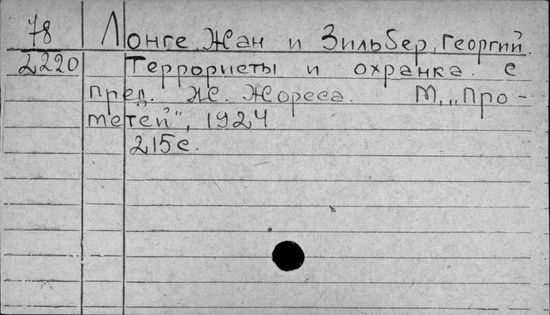 78 Лонге, Жан и Зильбер, Георгий.
2220 Террористы и охранка. С
пред. Ж. Жореса. М, „Про-
метей", 1924
215с.